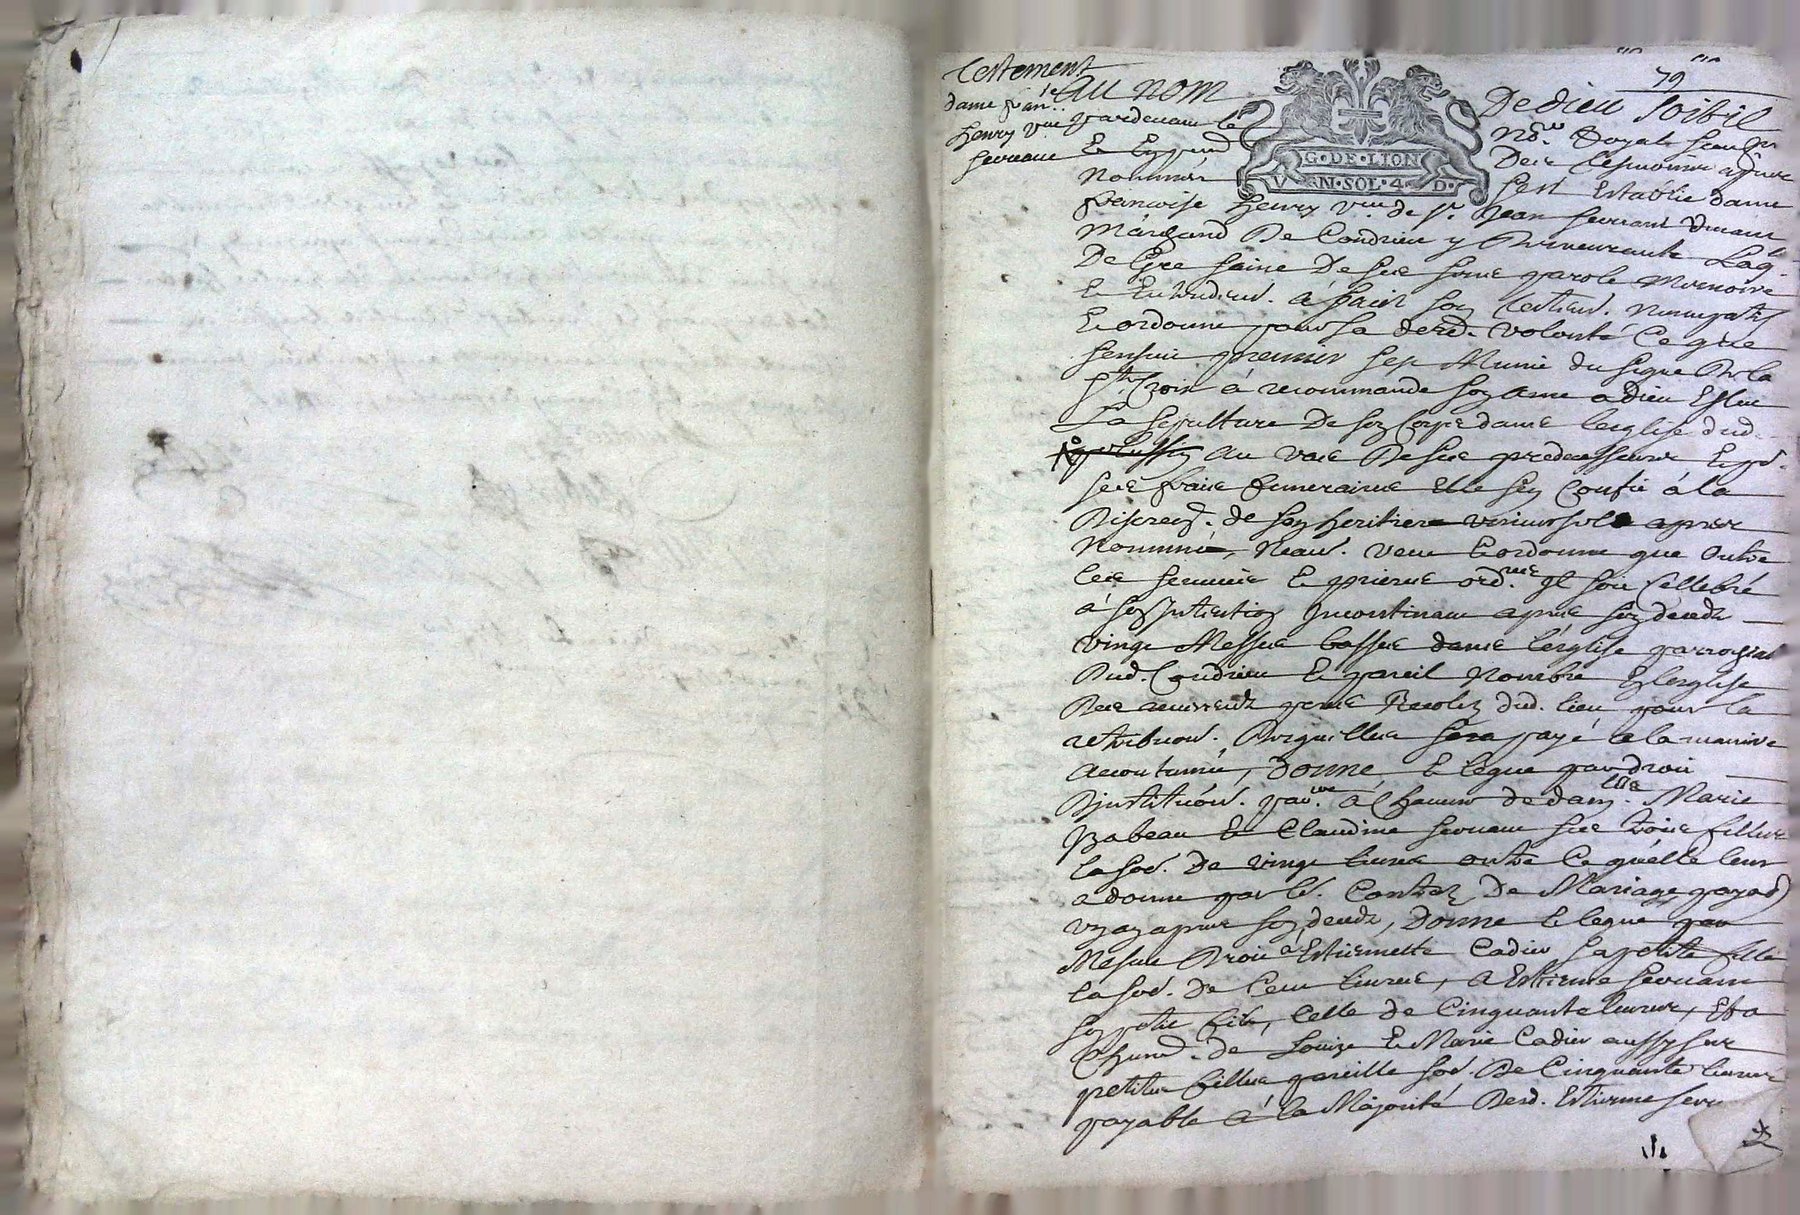 Testement
dame fran.e
henry v.ue
servant
79
au nom De dieu soit il
pardevant le no.re Royal
et
nommés s'est Establie dame
francoise henry v.ue de s.r Jean servant vivant
Marchand De Condrieu y Demeurante Laq.
De gre saine De ses sens parole memoire
Et Entendem. a fait son testem. nuncupatif
Et ordonne pour sa dern. volonté Ce que
sensuit premier sest Munie du signe De la
s.te Croix a recommandé son ame a dieu Eslue
La sepulture De son Corps dans lesglise dud.
au vas De ses predecesseurs Et p.
ses frais funeraires Elle sen Confie à la
Discreon. de son heritiere universelle apres
nommée, neanm. veut Et ordonne que outre
les services Et prieres ord.res Il soit Cellebré
à son Intention Incontinant apres son deceds
vingt Messes basses dans lesglise parroissial
Dud. Condrieu Et pareil nombre En lesglise
Des reverends peres Recolez dud. lieu pour la
retribuon. Desquelles sera payé a la maniere
accoutumée, Donne Et legue par droit
D'institution. par.re à Chacune de dam.lles Marie
Izabeau Et Claudine servant ses trois filles
la som. De vingt livres outre Ce quelle leur
a donné par le. Contrat De Mariage payab.
un an apres son deceds, Donne Et legue par
Mesme Droit a Estiennette Cadier sa petite fille
la som. De Cent livres, a Estienne servant
son petit fils, Celle de Cinquante livres, Et a
Chacune. de Louise Et Marie Cadier aussy ses
petites filles pareille som. De Cinquante livres
payable à la Majorité Desd. Estienne serv
G·DE·LION
V N·SOL·4 D·